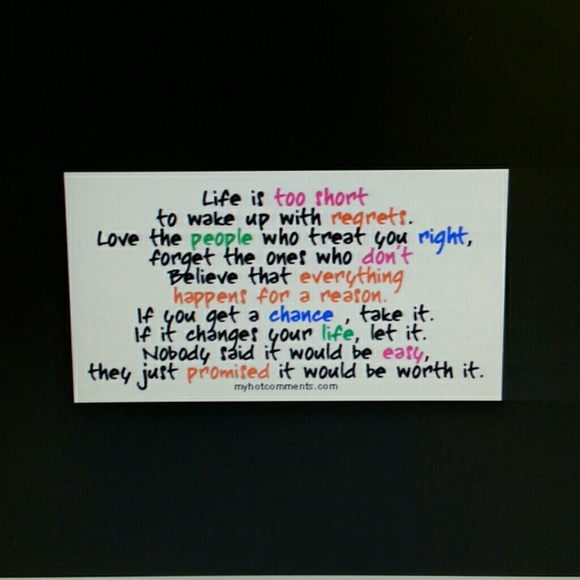 Life is too short
to wake up with regrets.
Love the people who treat you right,
forget the ones who don't
Believe that everything
happens for a reason.
If you get a chance , take it.
If it changes your life, let it.
Nobody said it would be easy,
they just promised it would be worth it.
myhotcomments.com